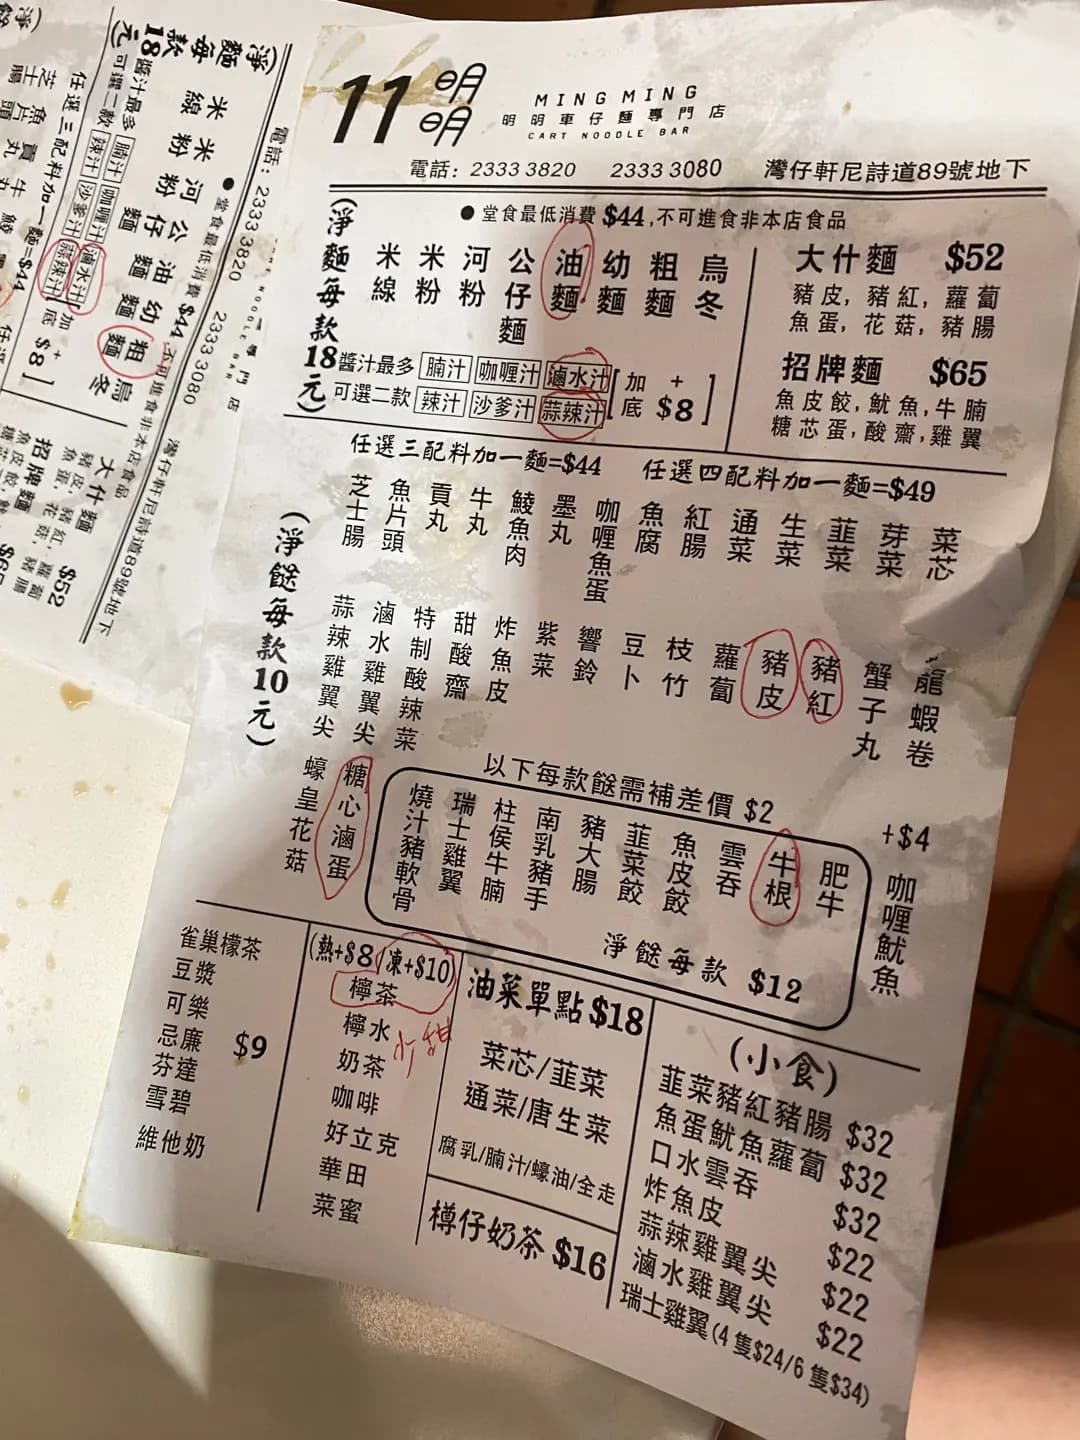 11 明明
MING MING
明明車仔麵專門店
CART NOODLE BAR
電話: 2333 3820 2333 3080 灣仔軒尼詩道89號地下
●堂食最低消費 $44,不可進食非本店食品
(淨麵每款18元)
米線 米粉 河粉 公仔麵 油麵 幼麵 粗麵 烏冬
醬汁最多 腩汁 咖喱汁 滷水汁
可選二款 辣汁 沙爹汁 蒜辣汁
[加底 + $8]
大什麵 $52
豬皮, 豬紅, 蘿蔔
魚蛋, 花菇, 豬腸
招牌麵 $65
魚皮餃, 魷魚, 牛腩
糖芯蛋, 酸齋, 雞翼
任選三配料加一麵=$44 任選四配料加一麵=$49
(淨餸每款10元)
芝士腸 魚片頭 貢丸 牛丸 鯪魚肉 墨丸 咖喱魚蛋 魚腐 紅腸 通菜 生菜 韮菜 芽菜 菜芯
蒜辣雞翼尖 滷水雞翼尖 特制酸辣菜 甜酸齋 炸魚皮 紫菜 響鈴 豆卜 枝竹 蘿蔔 豬皮 豬紅 蟹子丸 龍蝦卷
蠔皇花菇 糖心滷蛋
以下每款餸需補差價 $2
燒汁豬軟骨 瑞士雞翼 柱侯牛腩 南乳豬手 豬大腸 韮菜餃 魚皮餃 雲吞 牛根 肥牛
淨餸每款 $12
+$4
咖喱魷魚
雀巢檬茶
豆漿
可樂
忌廉 $9
芬達
雪碧
維他奶
(熱+$8/凍+$10)
檸茶
檸水
少甜
奶茶
咖啡
好立克
華田
菜蜜
油菜單點 $18
菜芯/韮菜
通菜/唐生菜
腐乳/腩汁/蠔油/全走
樽仔奶茶 $16
(小食)
韮菜豬紅豬腸 $32
魚蛋魷魚蘿蔔 $32
口水雲吞 $32
炸魚皮 $22
蒜辣雞翼尖 $22
滷水雞翼尖 $22
瑞士雞翼(4隻$24/6隻$34)
電話: 2333 3820 2333 3080 灣仔軒尼詩道89號地下
●堂食最低消費 $44,不可進食非本店食品
(淨麵每款18元)
米線 米粉 河粉 公仔麵 油麵 幼麵 粗麵 烏冬
醬汁最多 腩汁 咖喱汁 滷水汁
可選二款 辣汁 沙爹汁 蒜辣汁
加底 + $8]
任選三配料加一麵=$44
大什麵 $52
招牌麵